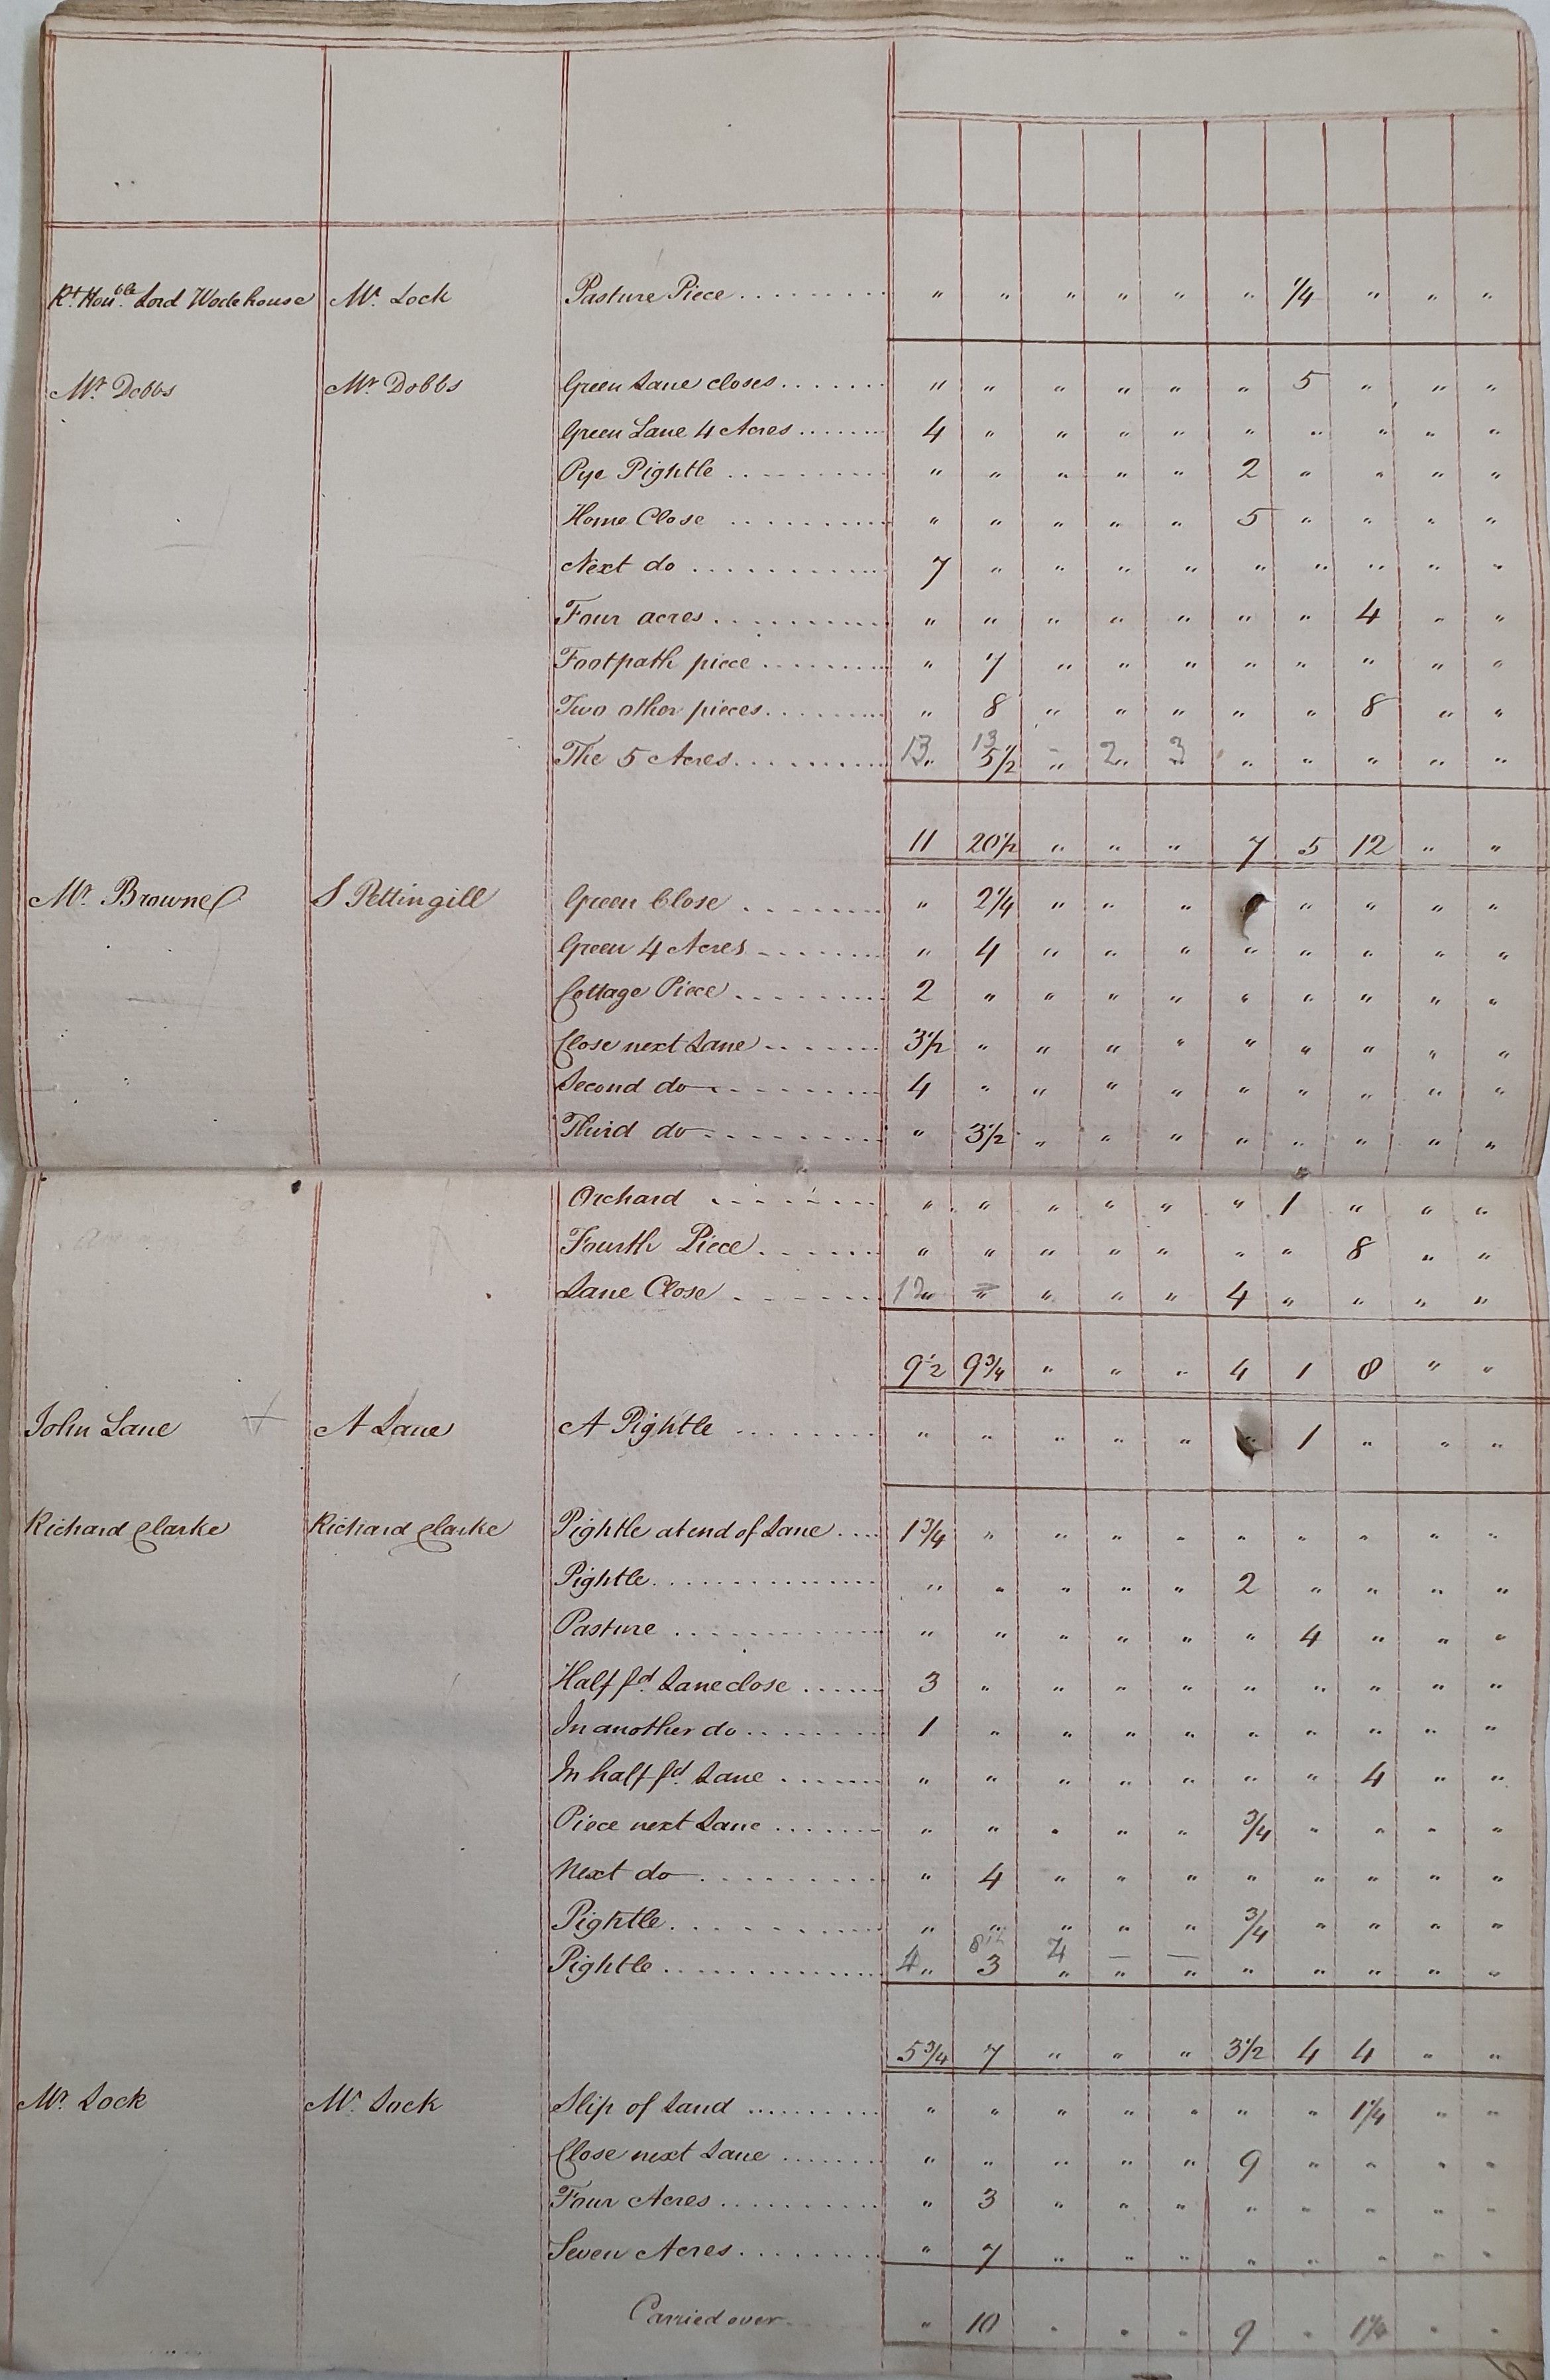 Rt. Honble. Lord Wodehouse Mr. Lock Pasture Piece . . . . . . . . . " " " " " " 1/4 " " "
Mr. Dobbs Mr. Dobbs Green Lane closes . . . . . . . " " " " " " 5 " " "
Green Lane 4 Acres . . . . . . . 4 " " " " " " " " "
Pye Pightle . . . . . . . . . . " " " " " 2 " " " "
Home Close . . . . . . . . . . " " " " " 5 " " " "
Next do . . . . . . . . . . . . 7 " " " " " " " " "
Four acres . . . . . . . . . . . " " " " " " " 4 " "
Footpath piece . . . . . . . . . " 7 " " " " " " " "
Two other pieces . . . . . . . . " 8 " " " " " 8 " "
13 13 - 2 3
The 5 Acres . . . . . . . . . . " 5 1/2 " " " " " " " "
11 20 1/2 " " " 7 5 12 " "
Mr. Browne S Pettingill Green Close . . . . . . . . " 2 1/4 " " " " " " "
Green 4 Acres . . . . . . . . " 4 " " " " " " " "
Cottage Piece . . . . . . . . 2 " " " " " " " " "
Close next Lane . . . . . . . 3 1/2 " " " " " " " " "
Second do . . . . . . . . . . 4 " " " " " " " " "
Third do . . . . . . . . . . " 3 1/2 " " " " " " " "
Orchard . . . . . . . . . " " " " " " 1 " " "
Fourth Piece . . . . . . . " " " " " " " 8 " "
Lane Close . . . . . . . . 12 " " " " " 4 " " " "
9 1/2 9 3/4 " " " 4 1 8 " "
John Lane + A Lane A Pightle . . . . . . . . " " " " " " 1 " " "
Richard Clarke Richard Clarke Pightle at end of Lane . . . . 1 3/4 " " " " " " " " "
Pightle . . . . . . . . . . . . . " " " " " 2 " " " "
Pasture . . . . . . . . . . . . " " " " " " 4 " " "
Half fd. Lane close . . . . . . 3 " " " " " " " " "
In another do . . . . . . . . 1 " " " " " " " " "
In half fd. Lane . . . . . . . " " " " " " " 4 " "
Piece next Lane . . . . . . . " " " " " 3/4 " " " "
Next do . . . . . . . . . . . " 4 " " " " " " " "
Pightle . . . . . . . . . . . " " " " " 3/4 " " " "
4 8 1/2 4 — —
Pightle . . . . . . . . . . . . " 3 " " " " " " " "
5 3/4 7 " " " 3 1/2 4 4 " "
Mr. Lock Mr. Lock Slip of Land . . . . . . . . . " " " " " " " 1 1/4 " "
Close next Lane . . . . . . . " " " " " 9 " " " "
Four Acres . . . . . . . . . . " 3 " " " " " " " "
Seven Acres . . . . . . . . . " 7 " " " " " " " "
Carried over . . . " 10 " " " 9 " 1 1/4 " "